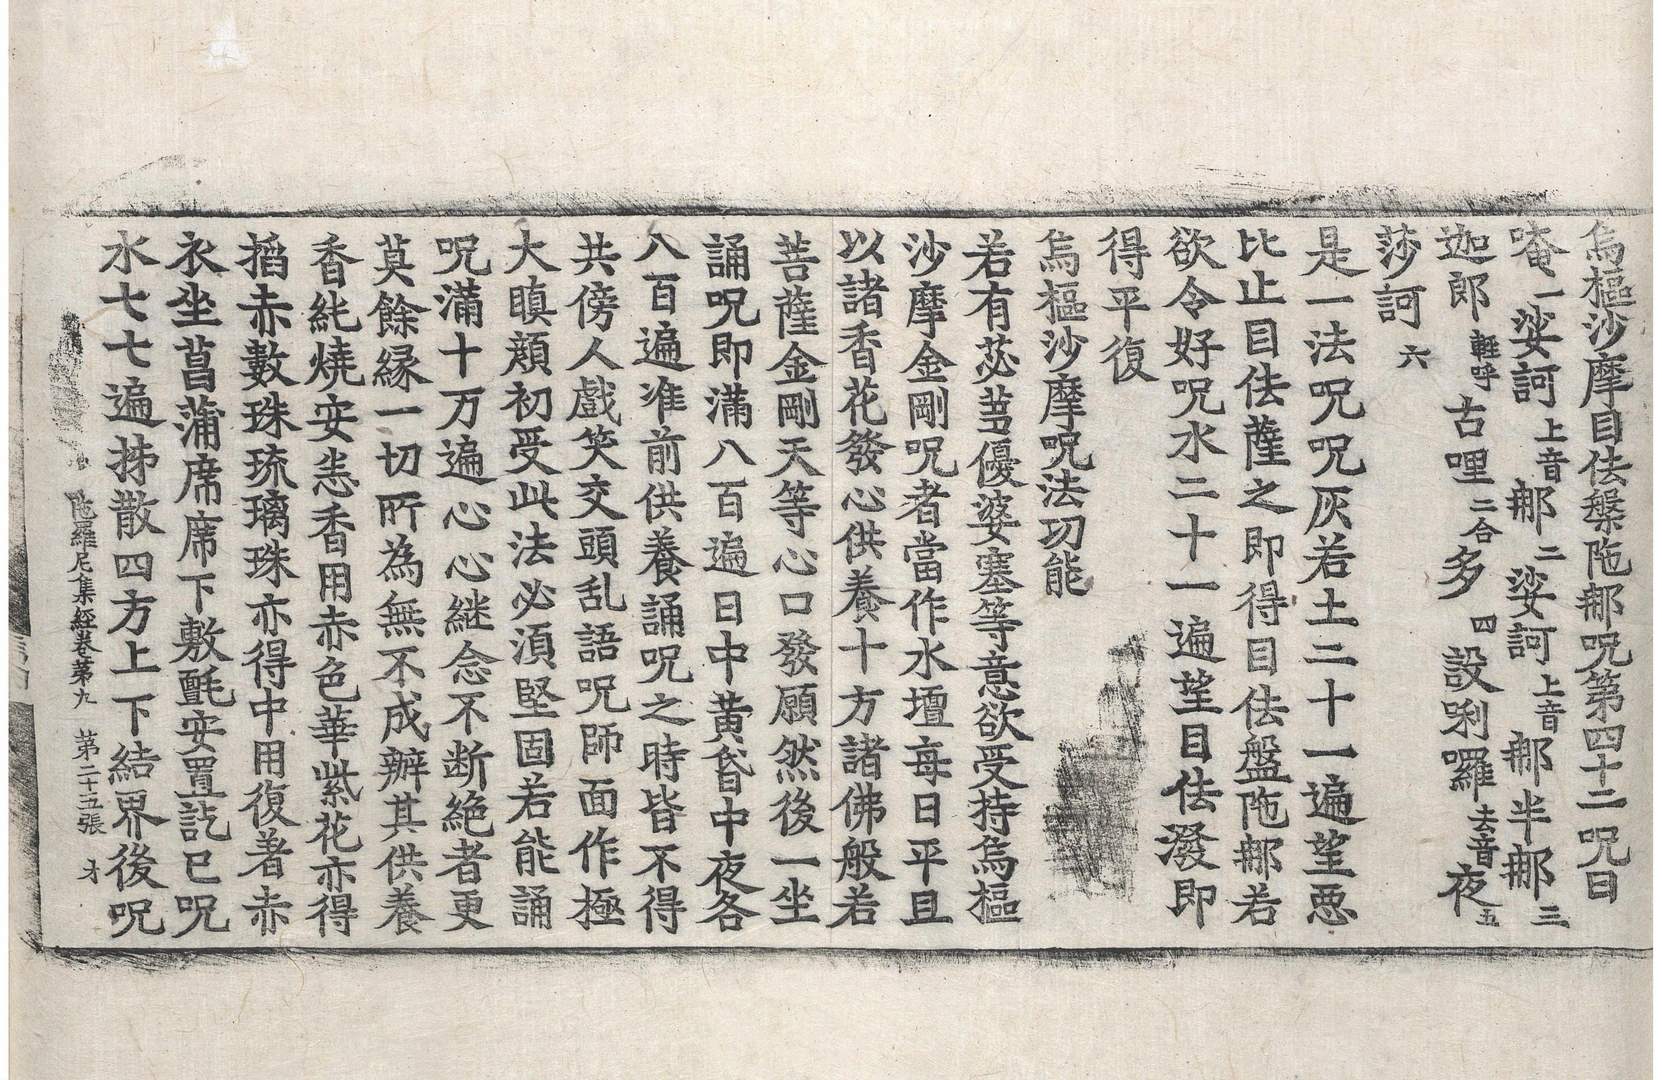 烏樞沙摩目佉槃陁𨚗呪第四十二呪曰
唵一娑訶上音𨚗二娑訶上音𨚗半𨚗三
迦郎輕呼古哩二合多四設唎囉去音夜五
莎訶六
是一法呪呪灰若土二十一遍望惡
比止目佉薩之即得目佉盤陁𨚗若
欲令好呪水二十一遍望目佉潑即
得平復
烏樞沙摩呪法功能
若有苾蒭優婆塞等意欲受持烏樞
沙摩金剛呪者當作水壇每日平旦
以諸香花發心供養十方諸佛般若
菩薩金剛天等心口發願然後一坐
誦呪即滿八百遍日中黃昏中夜各
八百遍准前供養誦呪之時皆不得
共傍人戲笑交頭乱語呪師面作極
大瞋㒵初受此法必須堅固若能誦
呪滿十万遍心心継念不断絶者更
莫餘緣一切所為無不成辦其供養
香純燒安悉香用赤色華紫花亦得
搯赤數珠琉璃珠亦得中用復著赤
衣坐菖蒲席席下敷氈安置訖已呪
水七七遍捗散四方上下結界後呪
陁羅尼集經卷第九 第二十五張 才